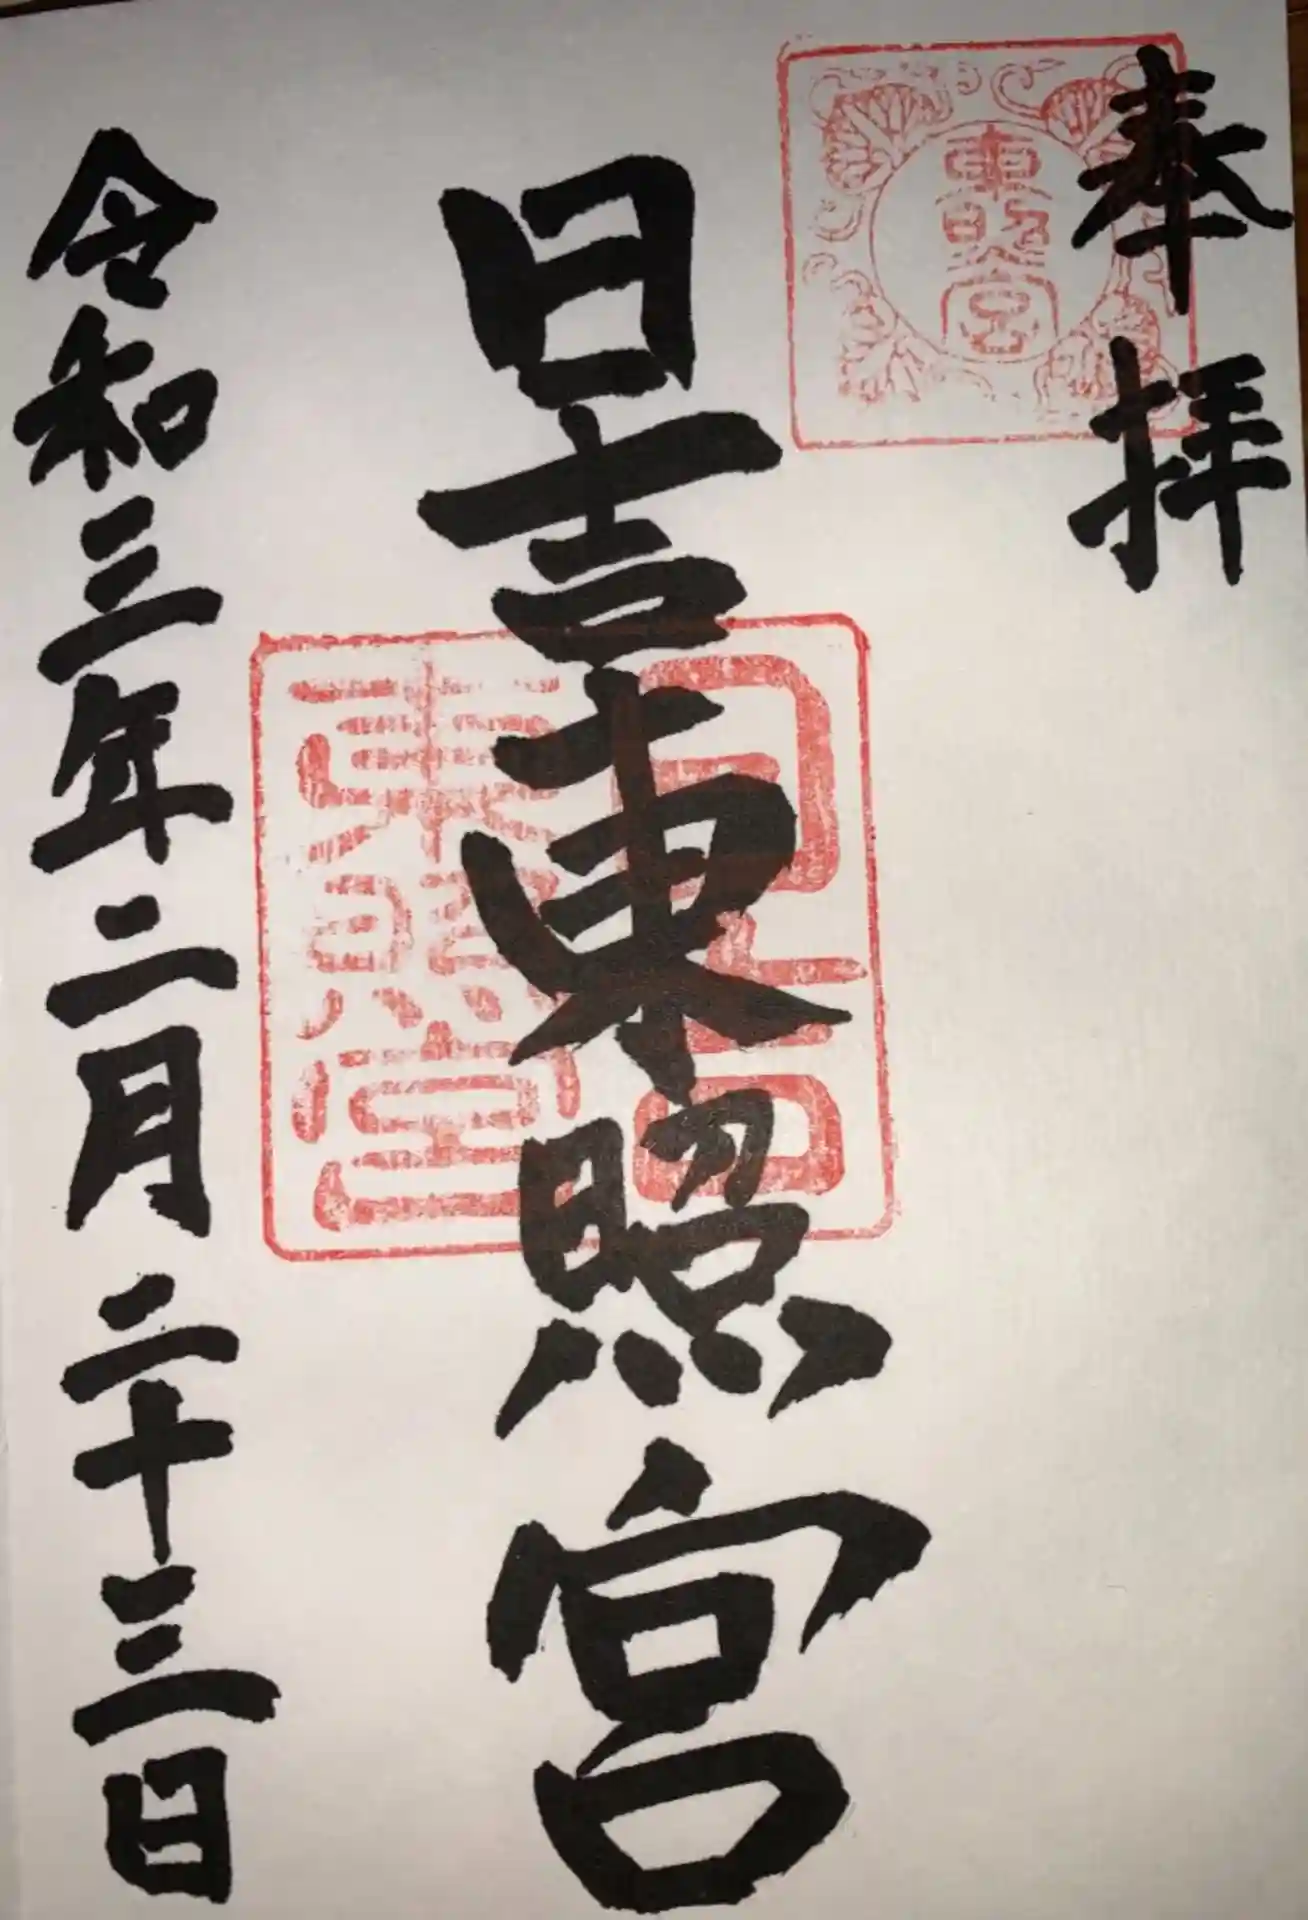 奉拝
東照宮
日吉東照宮
日吉
東照宮
令和三年二月二十三日